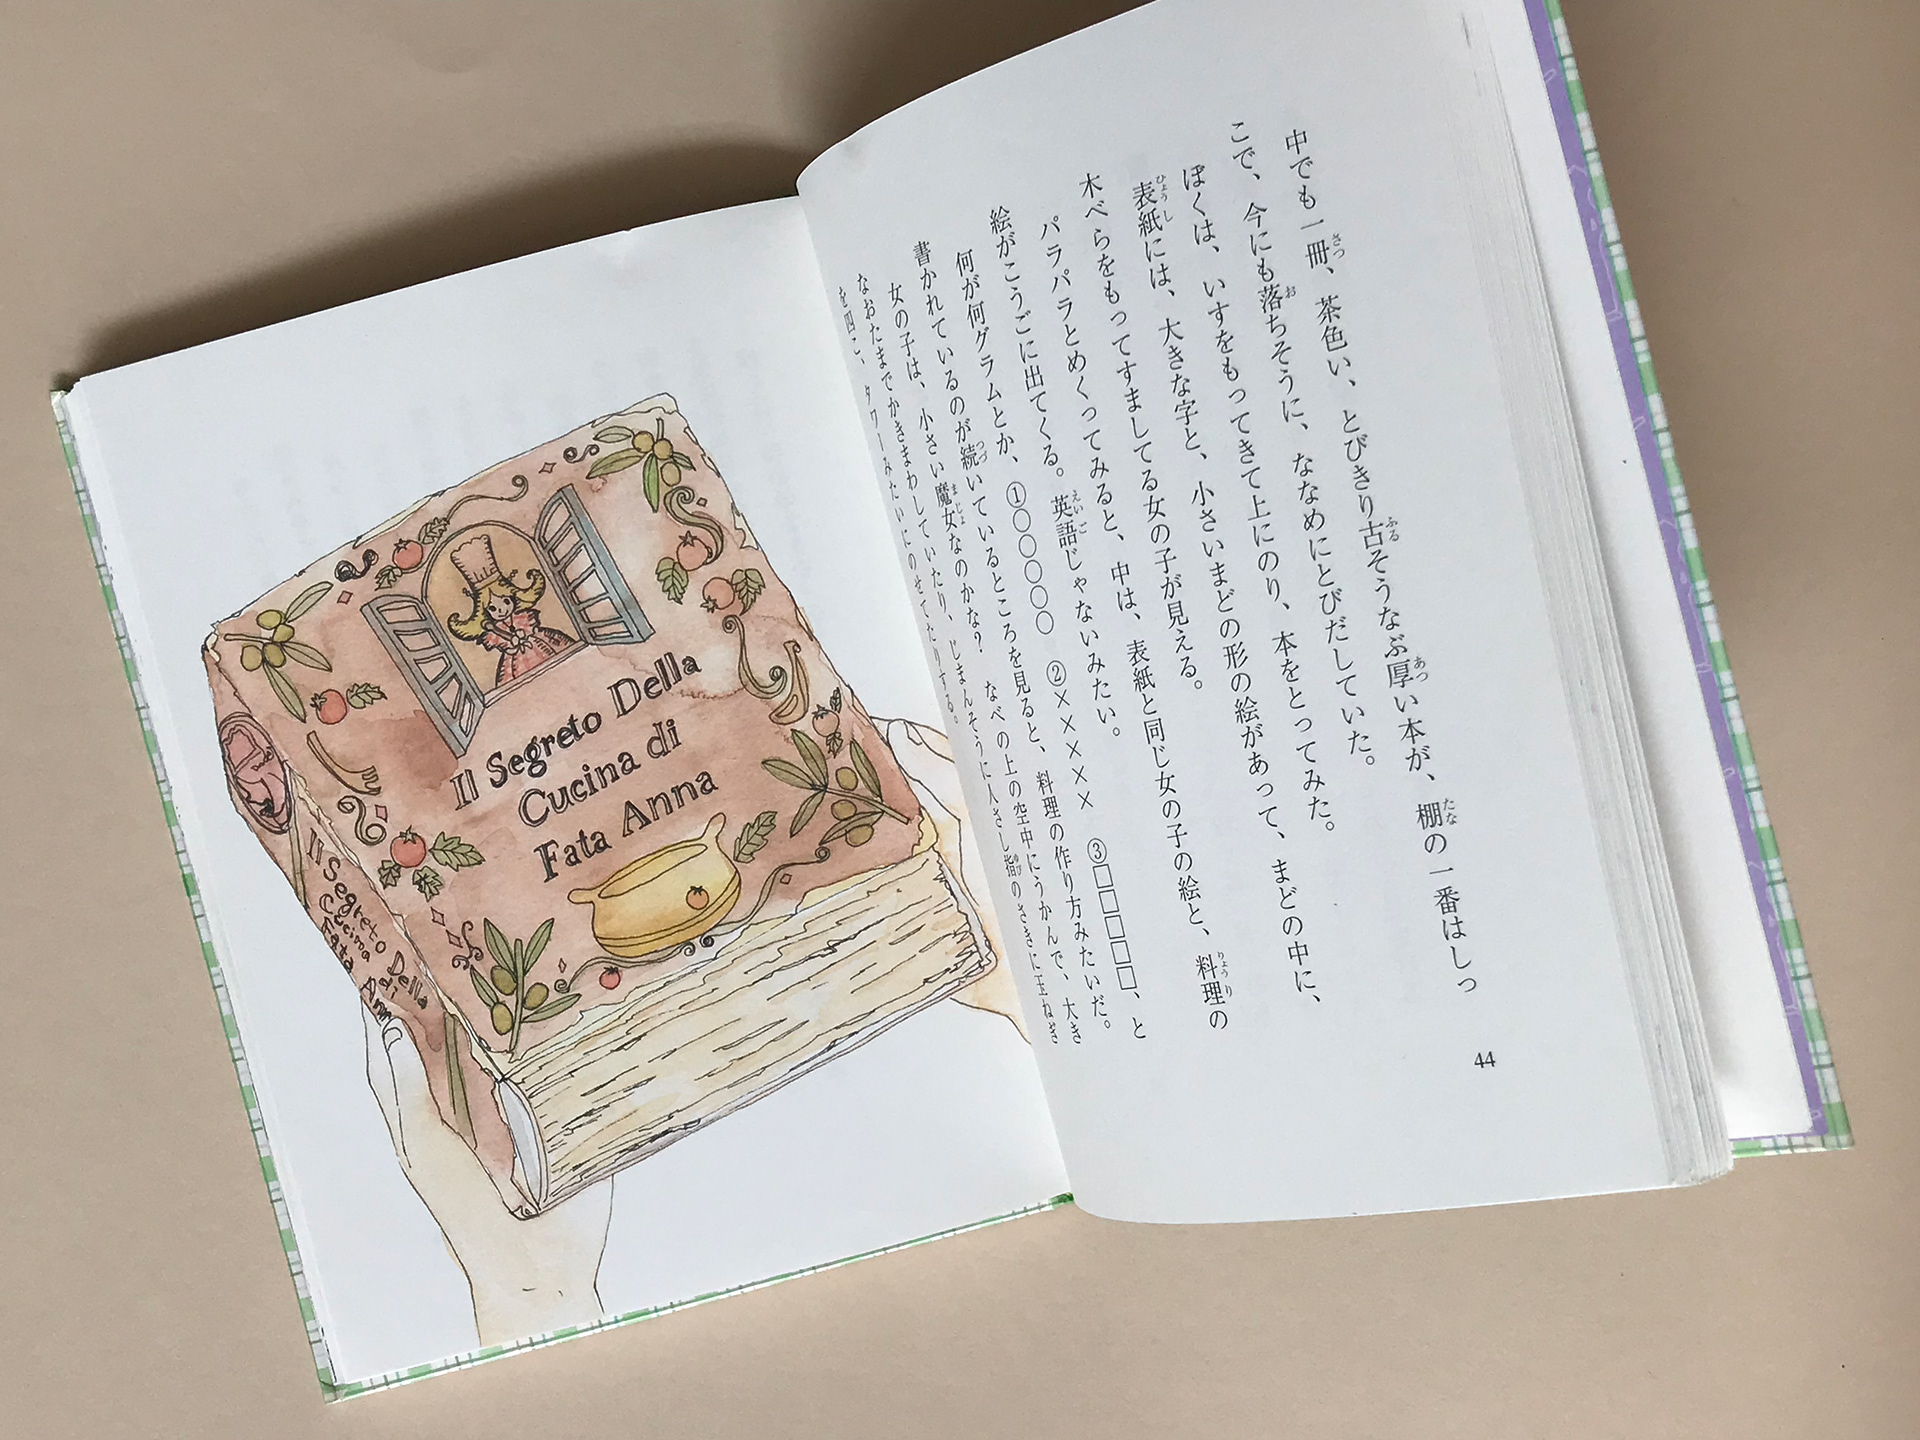 中でも一冊、茶色い、とびきり古そうなぶ厚い本が、棚の一番はしっ
こで、今にも落ちそうに、ななめにとびだしていた。
ぼくは、いすをもってきて上にのり、本をとってみた。
表紙には、大きな字と、小さいまどの形の絵があって、まどの中に、
木べらをもってすましてる女の子が見える。
パラパラとめくってみると、中は、表紙と同じ女の子の絵と、料理の
絵がこうごに出てくる。英語じゃないみたい。
何が何グラムとか、①○○○○○　②×××××　③□□□□□、と
書かれているのが続いているところを見ると、料理の作り方みたいだ。
女の子は、小さい魔女なのかな？　なべの上の空中にうかんで、大き
なおたまでかきまわしていたり、じまんそうに人さし指のさきに玉ねぎ
を四こ、タワーみたいにのせてたりする。
44
Il Segreto Della
Cucina di
Fata Anna
Il Segreto Della
Cucina di
Fata